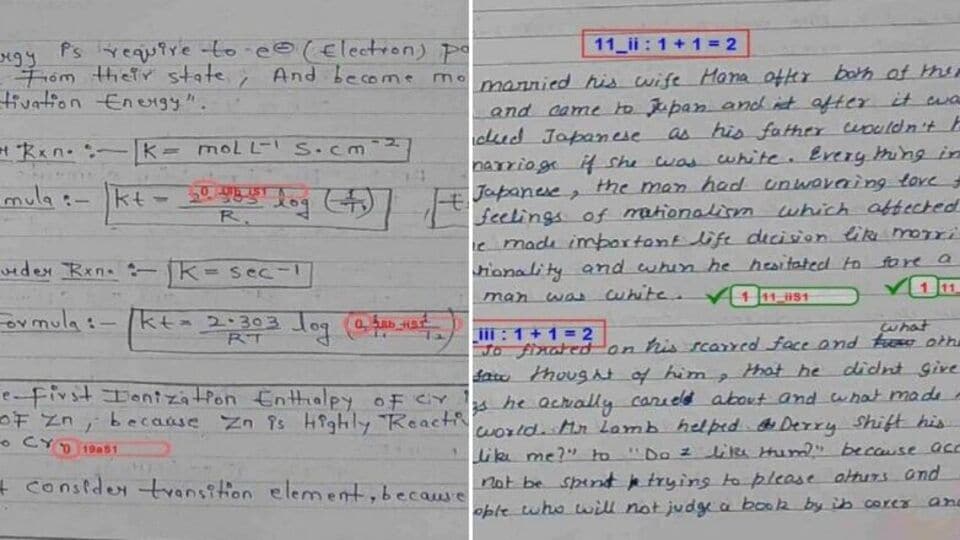 Ps require to e⊖ (Electron) Po
From their state, And become mo
tivation Energy".
Rxn. :— K = moL L-1 S.cm-2
mula :— kt = 2.303 log
R.
0
order Rxn. :— K = sec-1
Formula :— kt = 2.303 log
RT
0
e first Ionization Enthalpy of Cr
of Zn, because Zn is Highly Reacti
o Cr
0 19aS1
consider transition element, because
11_ii : 1 + 1 = 2
married his wife Hana after both of
and came to Japan and after it wa
Japanese as his father wouldn't
marriage if she was white. Every thing in
Japanese, the man had unwavering love
feelings of nationalism which affected
made important life decision like marri
and when he hesitated to
man was white.
1 11_iiS1
1 11_
_iii : 1 + 1 = 2
what
Jo on his scarred face and oth
thought of him, that he didnt give
he actually cared about and what made
world. Mr Lamb helped Derry shift his
like me?" to "Do I like them?" because acc
not be spent trying to please others and
ople who will not judge a book by its cover an